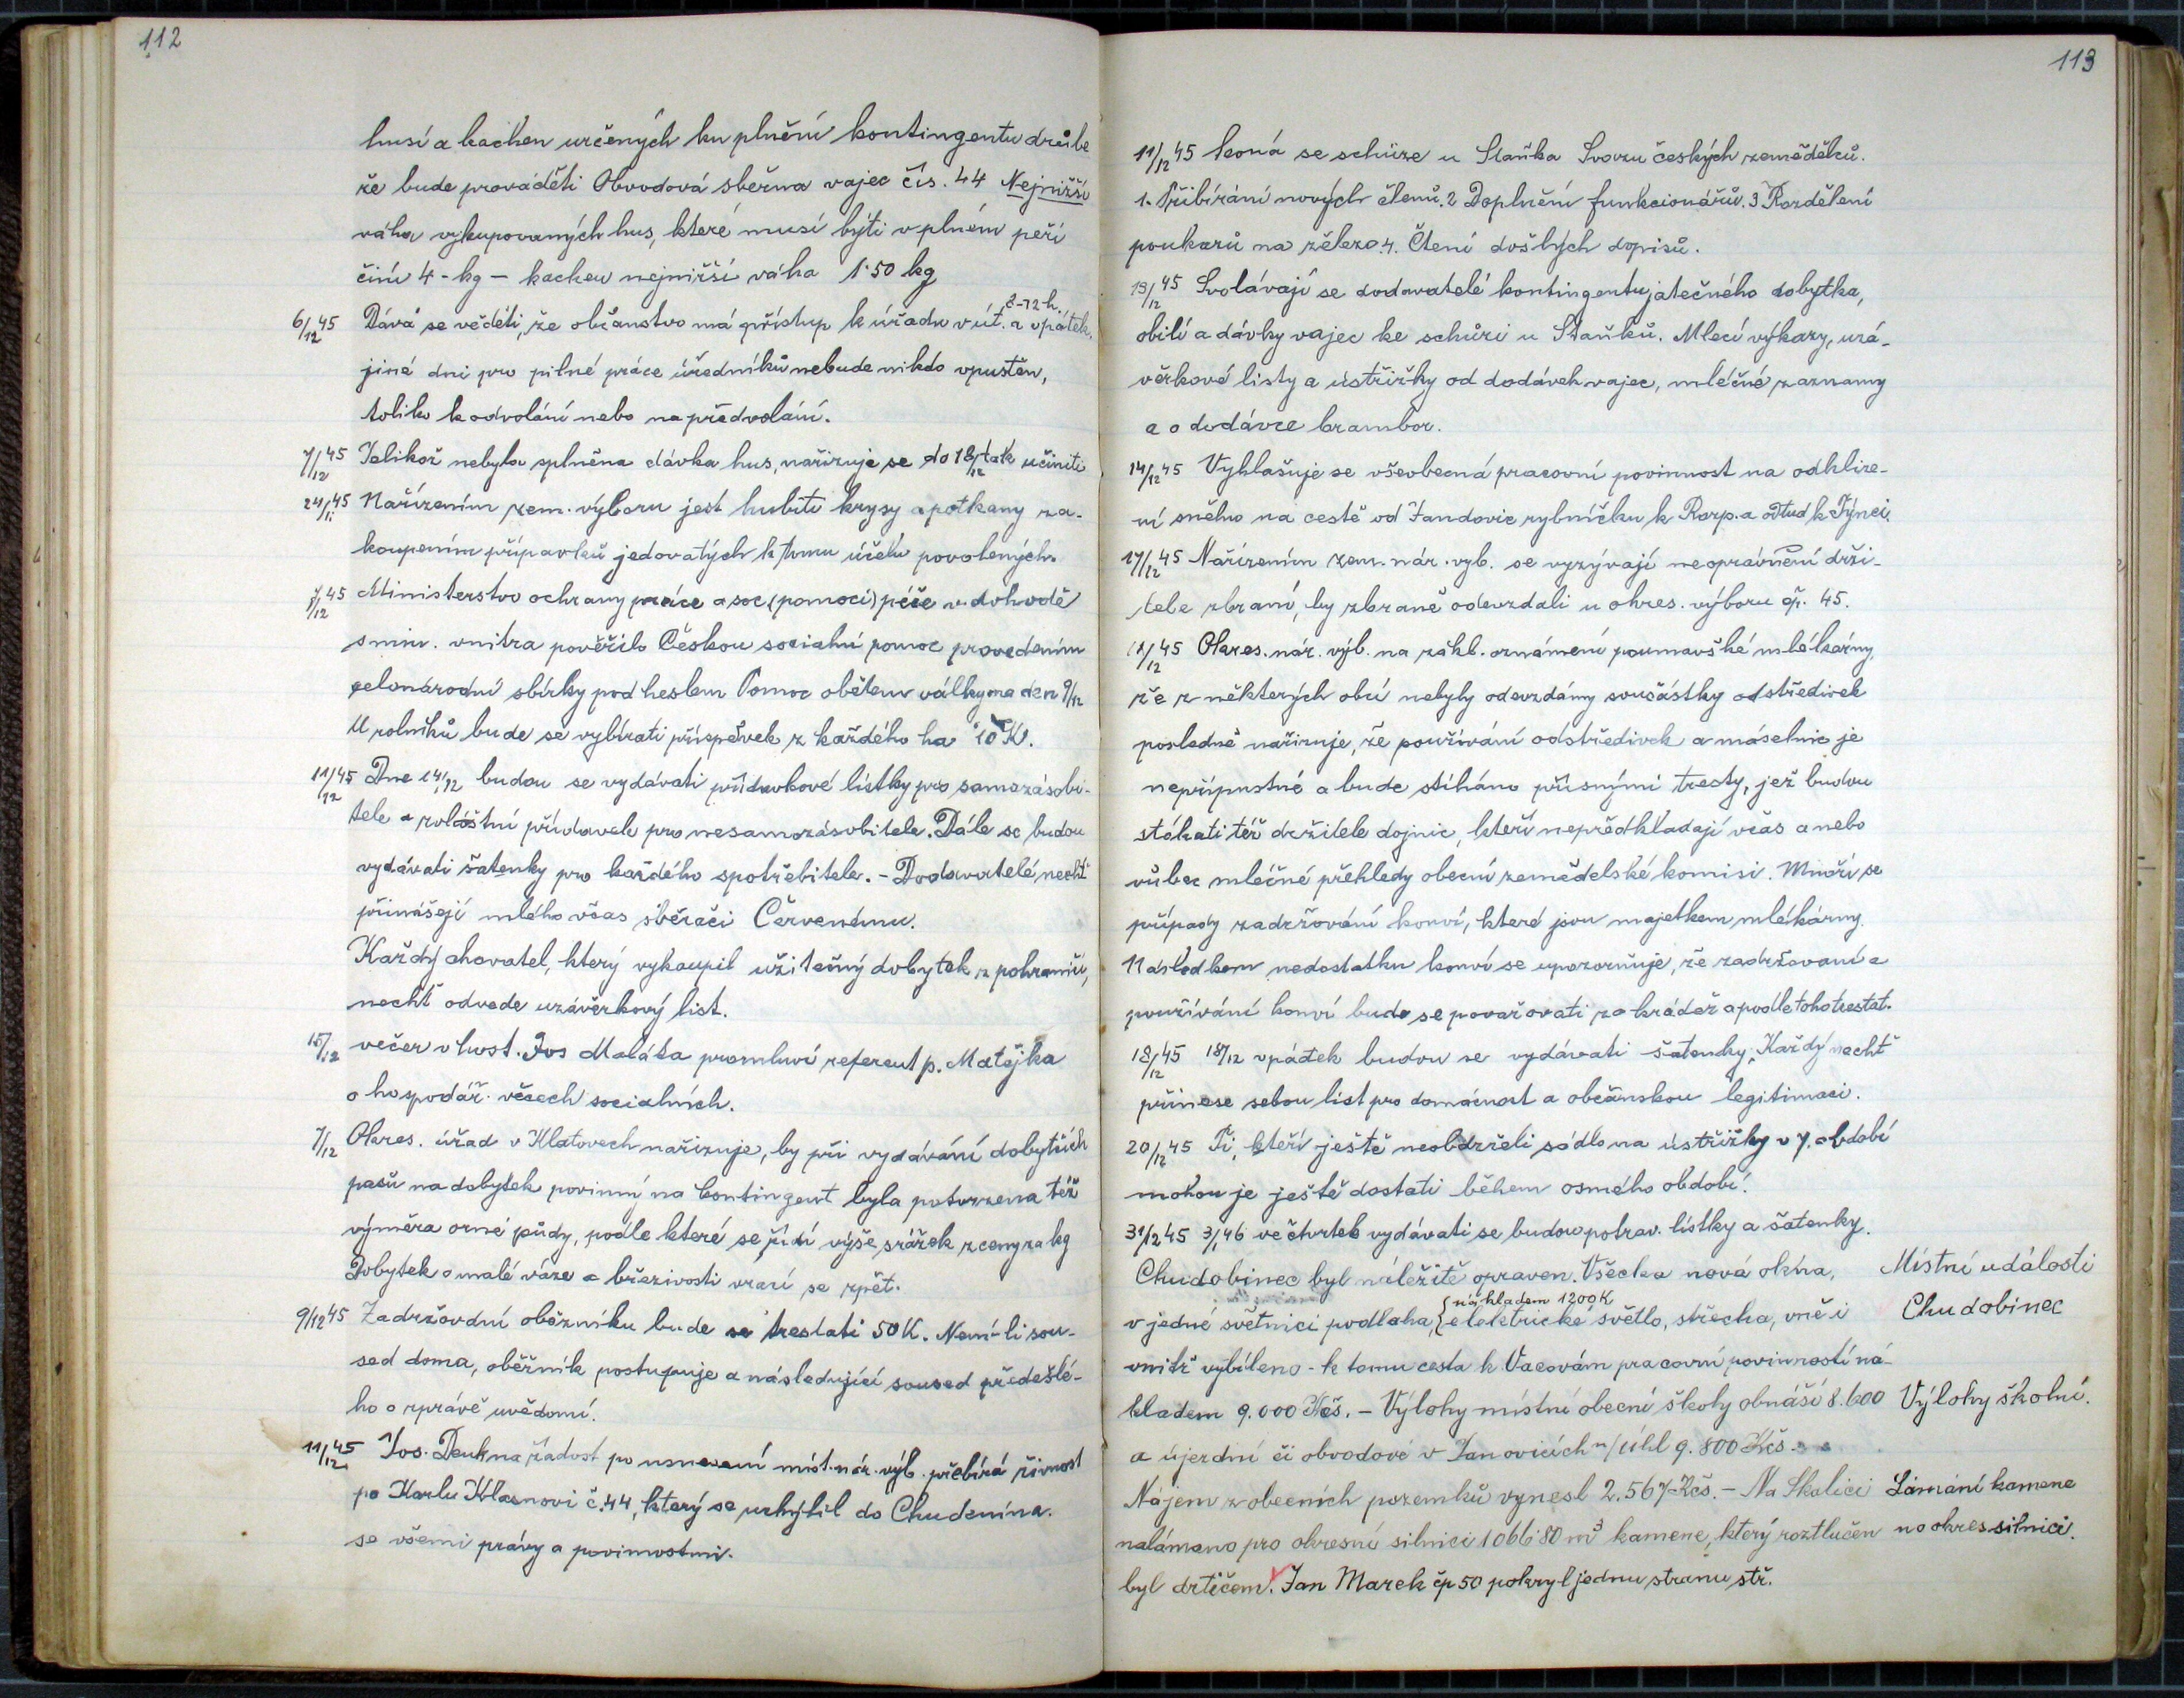 112
husí a kachen určených ku plnění kontingentu drůbe
že bude prováděti Obvodová sběrna vajec čís. 44 Nejnižší
váha vykupovaných hus, které musí býti v plném peří
činí 4 - kg - kachen nejnižší váha 1·50 kg
6/12 45 Dává se věděti, že občanstvo má přístup k úřadu v út. a v pátek 8-12 h.
jiné dni pro pilné práce úředníků nebude nikdo vpuštěn,
toliko k odvolání nebo na předvolání.
7/12 45 Jelikož nebyla splněna dávka hus, nařizuje se do 18/12 tak učiniti
24/11 45 Nařízením zem. výboru jest hubiti krysy a potkany za-
koupením přípavků jedovatých k tomu účelu povolených.
7/12 45 Ministerstvo ochrany práce a soc. (pomoci) péče v dohodě
s min. vnitra pověřilo Českou sociální pomoc provedením
celonárodní sbírky pod heslem Pomoc obětem války na den 9/12
U rolníků bude se vybírati příspěvek z každého ha 10 K.
11/12 45 Dne 14/12 budou se vydávati přídavkové lístky pro samozásobi-
tele a zvláštní přídavek pro nesamozásobitele. Dále se budou
vydávati šatenky pro každého spotřebitele. - Dodavatelé, nechť
přinášejí mléko včas sběrači Červenému.
Každý chovatel, který vykoupil užitečný dobytek z pohraničí,
nechť odvede uzávěrkový list.
15/12 večer v host. Jos Maláta promluví referent p. Matějka
o hospodář. věcech sociálních.
7/12 Okres. úřad v Klatovech nařizuje, by při vydávání dobytčích
pasů na dobytek povinný na kontingent byla potvrzena též
výměra orné půdy, podle které se řídí výše srážek z ceny za kg
Dobytek o malé váze a březivosti vrací se zpět.
9/12 45 Zadržování oběžníku bude se trestati 50 K. Není-li sou-
sed doma, oběžník postupuje a následující soused předešlé-
ho o zprávě uvědomí.
11/12 45 Jos. Denk na žádost po usnesení míst. nár. výb. přebírá živnost
po Karlu Klasnovi č. 44, který se uchýlil do Chudenína.
se všemi právy a povinostmi.
113
11/12 45 koná se schůze u Staňka Svazu českých zemědělců.
1. Přibírání nových členů. 2 Doplnění funkcionářů. 3 Rozdělení
poukazů na železo. 4. Čtení došlých dopisů.
13/12 45 Svolávají se dodavatelé kontingentu jatečného dobytka,
obilí a dávky vajec ke schůzi u Staňků. Mlecí výkazy, uzá-
věrkové listy a ústřižky od dodávek vajec, mléčné záznamy
a o dodávce brambor.
14/12 45 Vyhlašuje se všeobecná pracovní povinnost na odklize-
ní sněhu na cestě od Jandovic rybníčku k Rozp. a odtud k Týnci.
17/12 45 Nařízením zem. nár. vyb. se vyzývají neoprávnění drži-
tele zbraní, by zbraně odevzdali u okres. výboru čp. 45.
18/12 45 Okres. nár. výb. na zákl. oznámení pošumavské mlékárny,
že z některých obcí nebyly odevzdány součástky odstředivek
posledně nařizuje, že používání odstředivek a máselnic je
nepřípustné a bude stíháno přísnými tresty, jež budou
stíhati též držitele dojnic, kteří nepředkládají včas anebo
vůbec mléčné přehledy obecní zemědělské komisi. Množí se
případy zadržování konví, které jsou majetkem mlékárny.
Následkem nedostatku konví se upozorňuje, že zadržování a
používání konví bude se považovati za krádež a podle toho trestat.
18/12 45 18/12 v pátek budou se vydávati šatenky. Každý nechť
přinese sebou list pro domácnost a občanskou legitimaci.
20/12 45 Ti, kteří ještě neobdrželi sádlo na ústřižky v 7. období
mohou je ještě dostati během osmého období.
31/12 45 3/1 46 ve čtvrtek vydávati se budou potrav. lístky a šatenky.
Chudobinec byl náležitě opraven. Všecka nová okna, Místní události
v jedné světnici podlaha, {nákladem 1200 K {elektrické světlo, střecha, vně i Chudobinec
vnitř vybíleno - k tomu cesta k Vacovům pracovní povinností ná-
kladem 9.000 Kčs. - Výlohy místní obecní školy obnáší 8.600 Výlohy školní.
a újezdní či obvodové v Janovicích n/Úhl 9.800 Kčs.
Nájem z obecních pozemků vynesl 2.567 Kčs. - Na Skalici Lámání kamene
nalámano pro okresní silnici 1066·80 m³ kamene, který roztlučen na okres silnici.
byl drtičem. Jan Marek čp 50 pokryl jednu stranu stř.